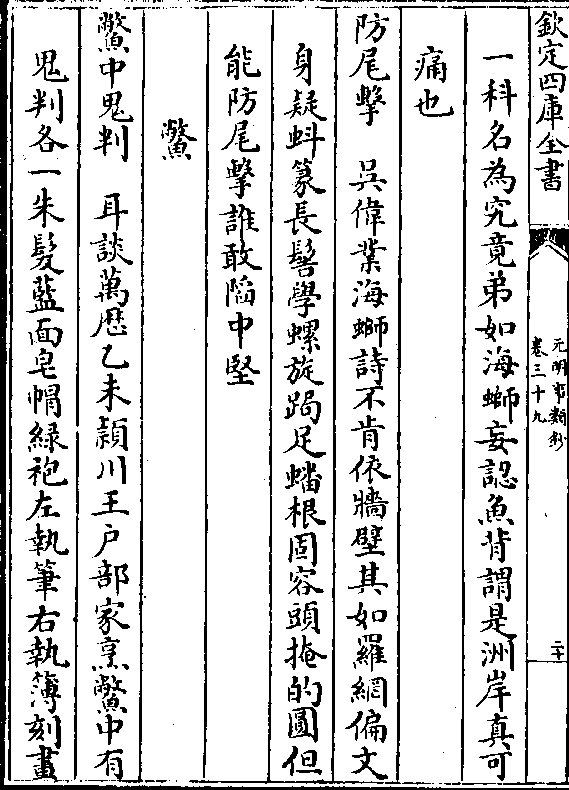 欽定四庫全書
元明事類鈔
卷三十九
二十
一科名為究竟弟如海螄妄認魚背謂是洲岸真可
痛也
防尾擊　吳偉業海螄詩不肯依牆壁其如羅網偏文
身疑蚪篆長髻學螺旋跼足蟠根固容頭掩的圓但
能防尾擊誰敢䧟中堅
鱉
鱉中鬼判　耳談萬厯乙未潁川王户部家烹鱉中有
鬼判各一朱髮藍面皂帽緑袍左執筆右執簿刻畫